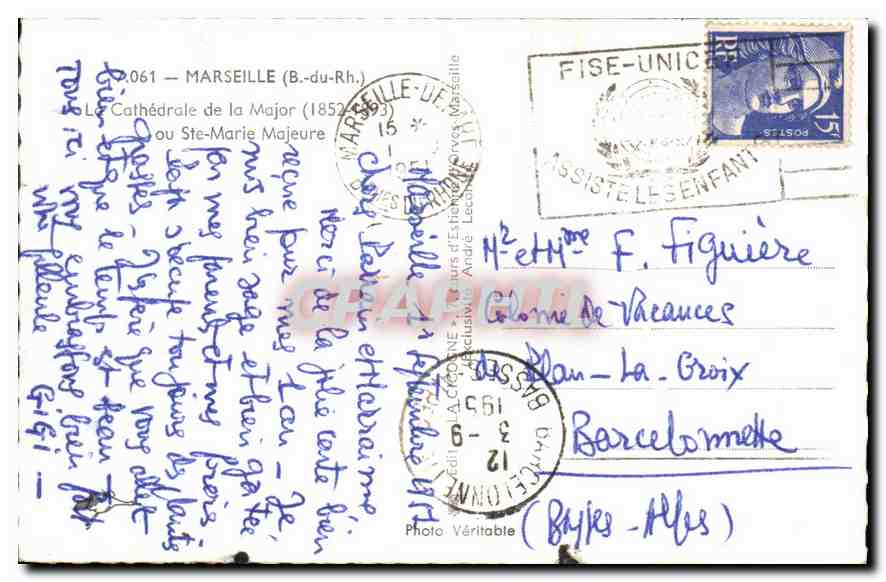 061 — MARSEILLE (B.-du-Rh.)
La Cathédrale de la Major (1852-1893)
ou Ste-Marie Majeure
MARSEILLE-DEPART
15 *
1
1951
B. DU RHONE
FISE-UNICEF
ASSISTE LES ENFANTS
RF
POSTES
15F
Marseille 1er Septembre 1951
Chers Parrain et Marraine
Merci de la jolie carte bien
reçue pour mes 2 an - Je
suis bien sage et bien gâtée
par mes parents et mes frères
Loft exécute toujours des fantai
Espère que vous allez
bien et que le temps est beau
Tous ici vous embrassons bien fort
votre filleule GIGI —
Mr et Mme F. Figuière
Colonie de Vacances
de Plan-La-Croix
Barcelonnette
(Basses-Alpes)
BARCELONNETTE
12
3 -9
195
BASSES
Edit. "LA CIGOGNE", Cours d'Estienne-d'Orves-Marseille
Exclusivité André Leconte
Photo Véritable
CPARTI